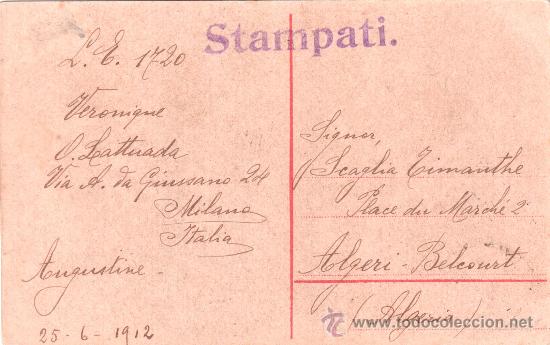 Stampati.
L. E. 1720
Veronique
O. Lattuada
Via A. da Giussano 24
Milano
Italia
Augustine -
25-6-1912
Signor,
Scaglia Timanthe
Place du Marché 2
Algeri-Belcourt
(Algeria)
todocoleccion
www.todocoleccion.net